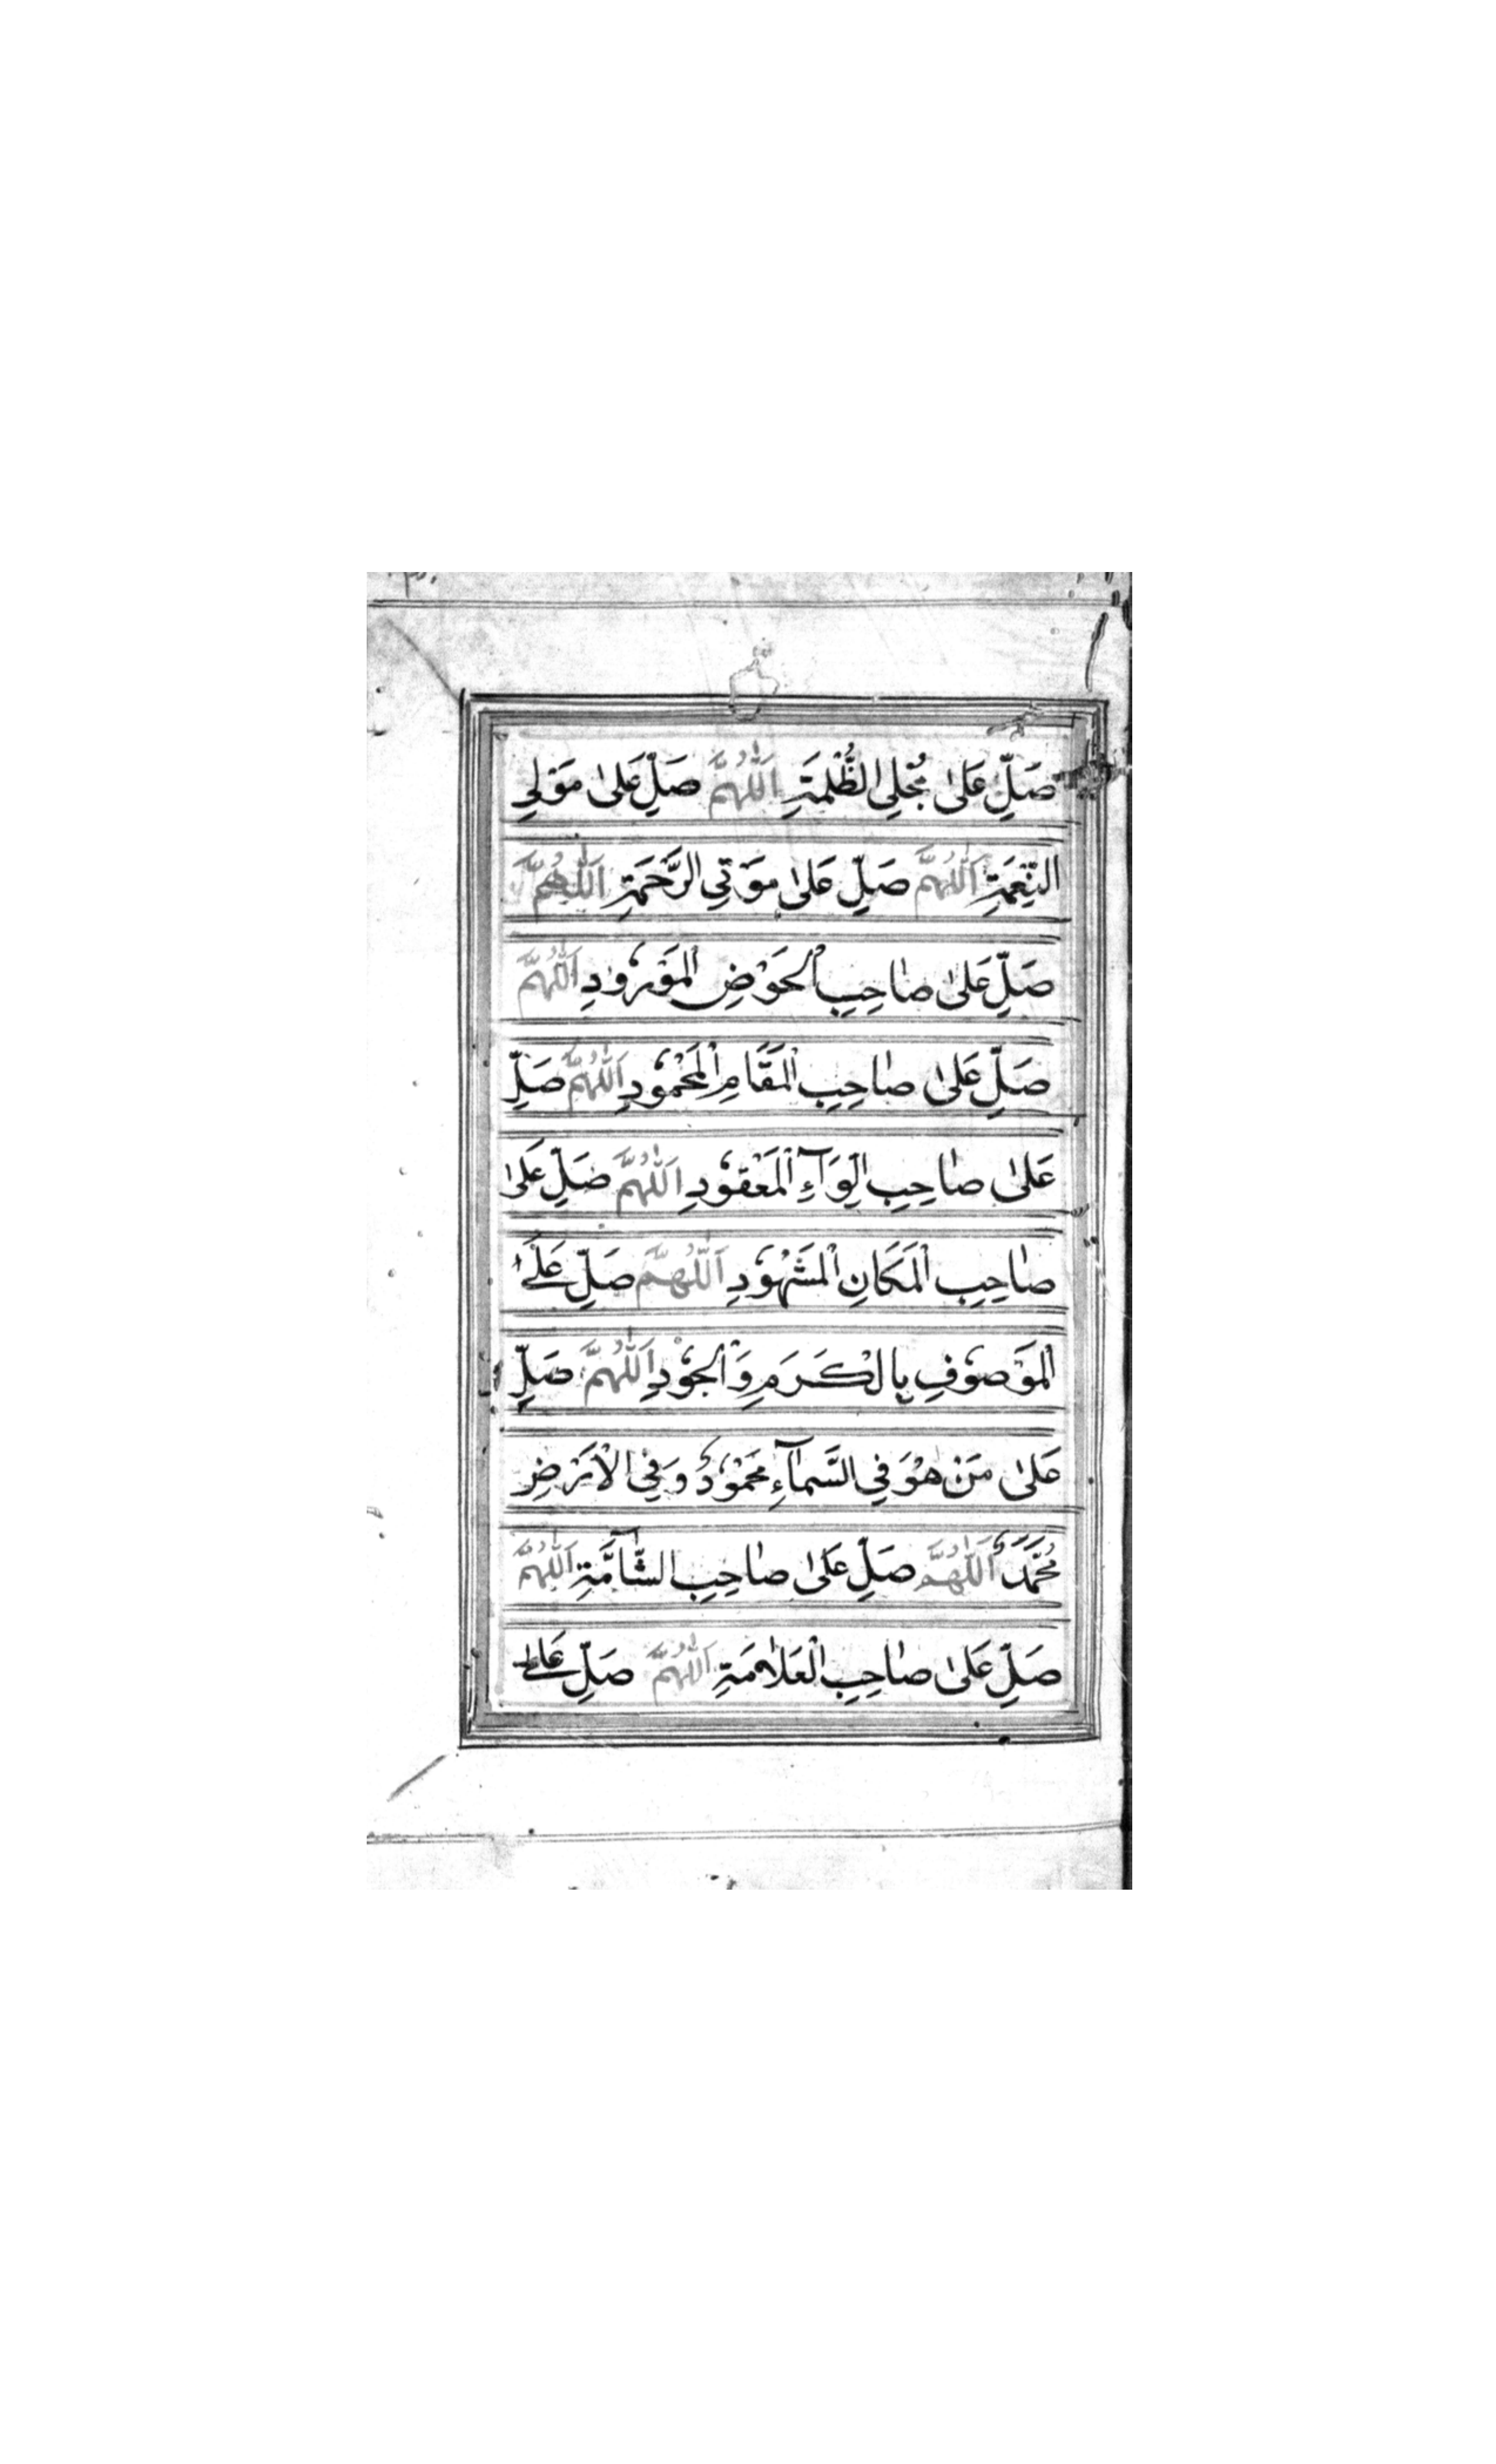 صَلِّ عَلىٰ مُجْلِي الظُّلْمَةِ اَللّٰهُمَّ صَلِّ عَلىٰ مَوْلِي
النِّعْمَةِ اَللّٰهُمَّ صَلِّ عَلىٰ مَوْتِي الرَّحْمَةِ اَللّٰهُمَّ
صَلِّ عَلىٰ صَاحِبِ الْحَوْضِ الْمَوْرُودِ اَللّٰهُمَّ
صَلِّ عَلىٰ صَاحِبِ الْمَقَامِ الْمَحْمُودِ اَللّٰهُمَّ صَلِّ
عَلىٰ صَاحِبِ الِوَآءِ الْمَعْقُودِ اَللّٰهُمَّ صَلِّ عَلىٰ
صَاحِبِ الْمَكَانِ الْمَشْهُودِ اَللّٰهُمَّ صَلِّ عَلىٰ
الْمَوْصُوفِ بِالْكَرَمِ وَالْجُوْدِ اَللّٰهُمَّ صَلِّ
عَلىٰ مَنْ هُوَ فِي السَّمَآءِ مَحْمُوْدٌ وَفِي الْاَرْضِ
مُحَمَّدٌ اَللّٰهُمَّ صَلِّ عَلىٰ صَاحِبِ الشَّامَّةِ اَللّٰهُمَّ
صَلِّ عَلىٰ صَاحِبِ الْعَلَامَةِ اَللّٰهُمَّ صَلِّ عَلىٰ